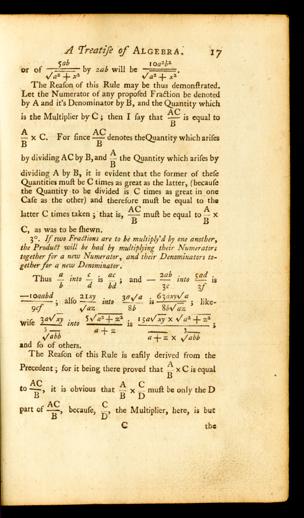 A Treatise of ALGEBRA. 17
or of 5ab/√a² + x² by 2ab will be 10a²b²/√a² + x².
The Reason of this Rule may be thus demonstrated.
Let the Numerator of any proposed Fraction be denoted
by A and it's Denominator by B, and the Quantity which
is the Multiplier by C; then I say that AC/B is equal to
A/B × C. For since AC/B denotes the Quantity which arises
by dividing AC by B, and A/B the Quantity which arises by
dividing A by B, it is evident that the former of these
Quantities must be C times as great as the latter, (because
the Quantity to be divided is C times as great in one
Case as the other) and therefore must be equal to the
latter C times taken; that is, AC/B must be equal to A/B ×
C, as was to be shewn.
3°. If two Fractions are to be multiply'd by one another,
the Product will be had by multiplying their Numerators
together for a new Numerator, and their Denominators to-
gether for a new Denominator.
Thus a/b into c/d is ac/bd; and — 2ab/3c into 5ad/3f is
—10aabd/9cf; also 21xy/√az into 3a√a/8b is 63axy√a/8b√az; like-
wise into is ;
and so of others.
The Reason of this Rule is easily derived from the
Precedent; for it being there proved that A/B × C is equal
to AC/B, it is obvious that A/B × C/D must be only the D
part of AC/B, because, C/D, the Multiplier, here, is but
C the